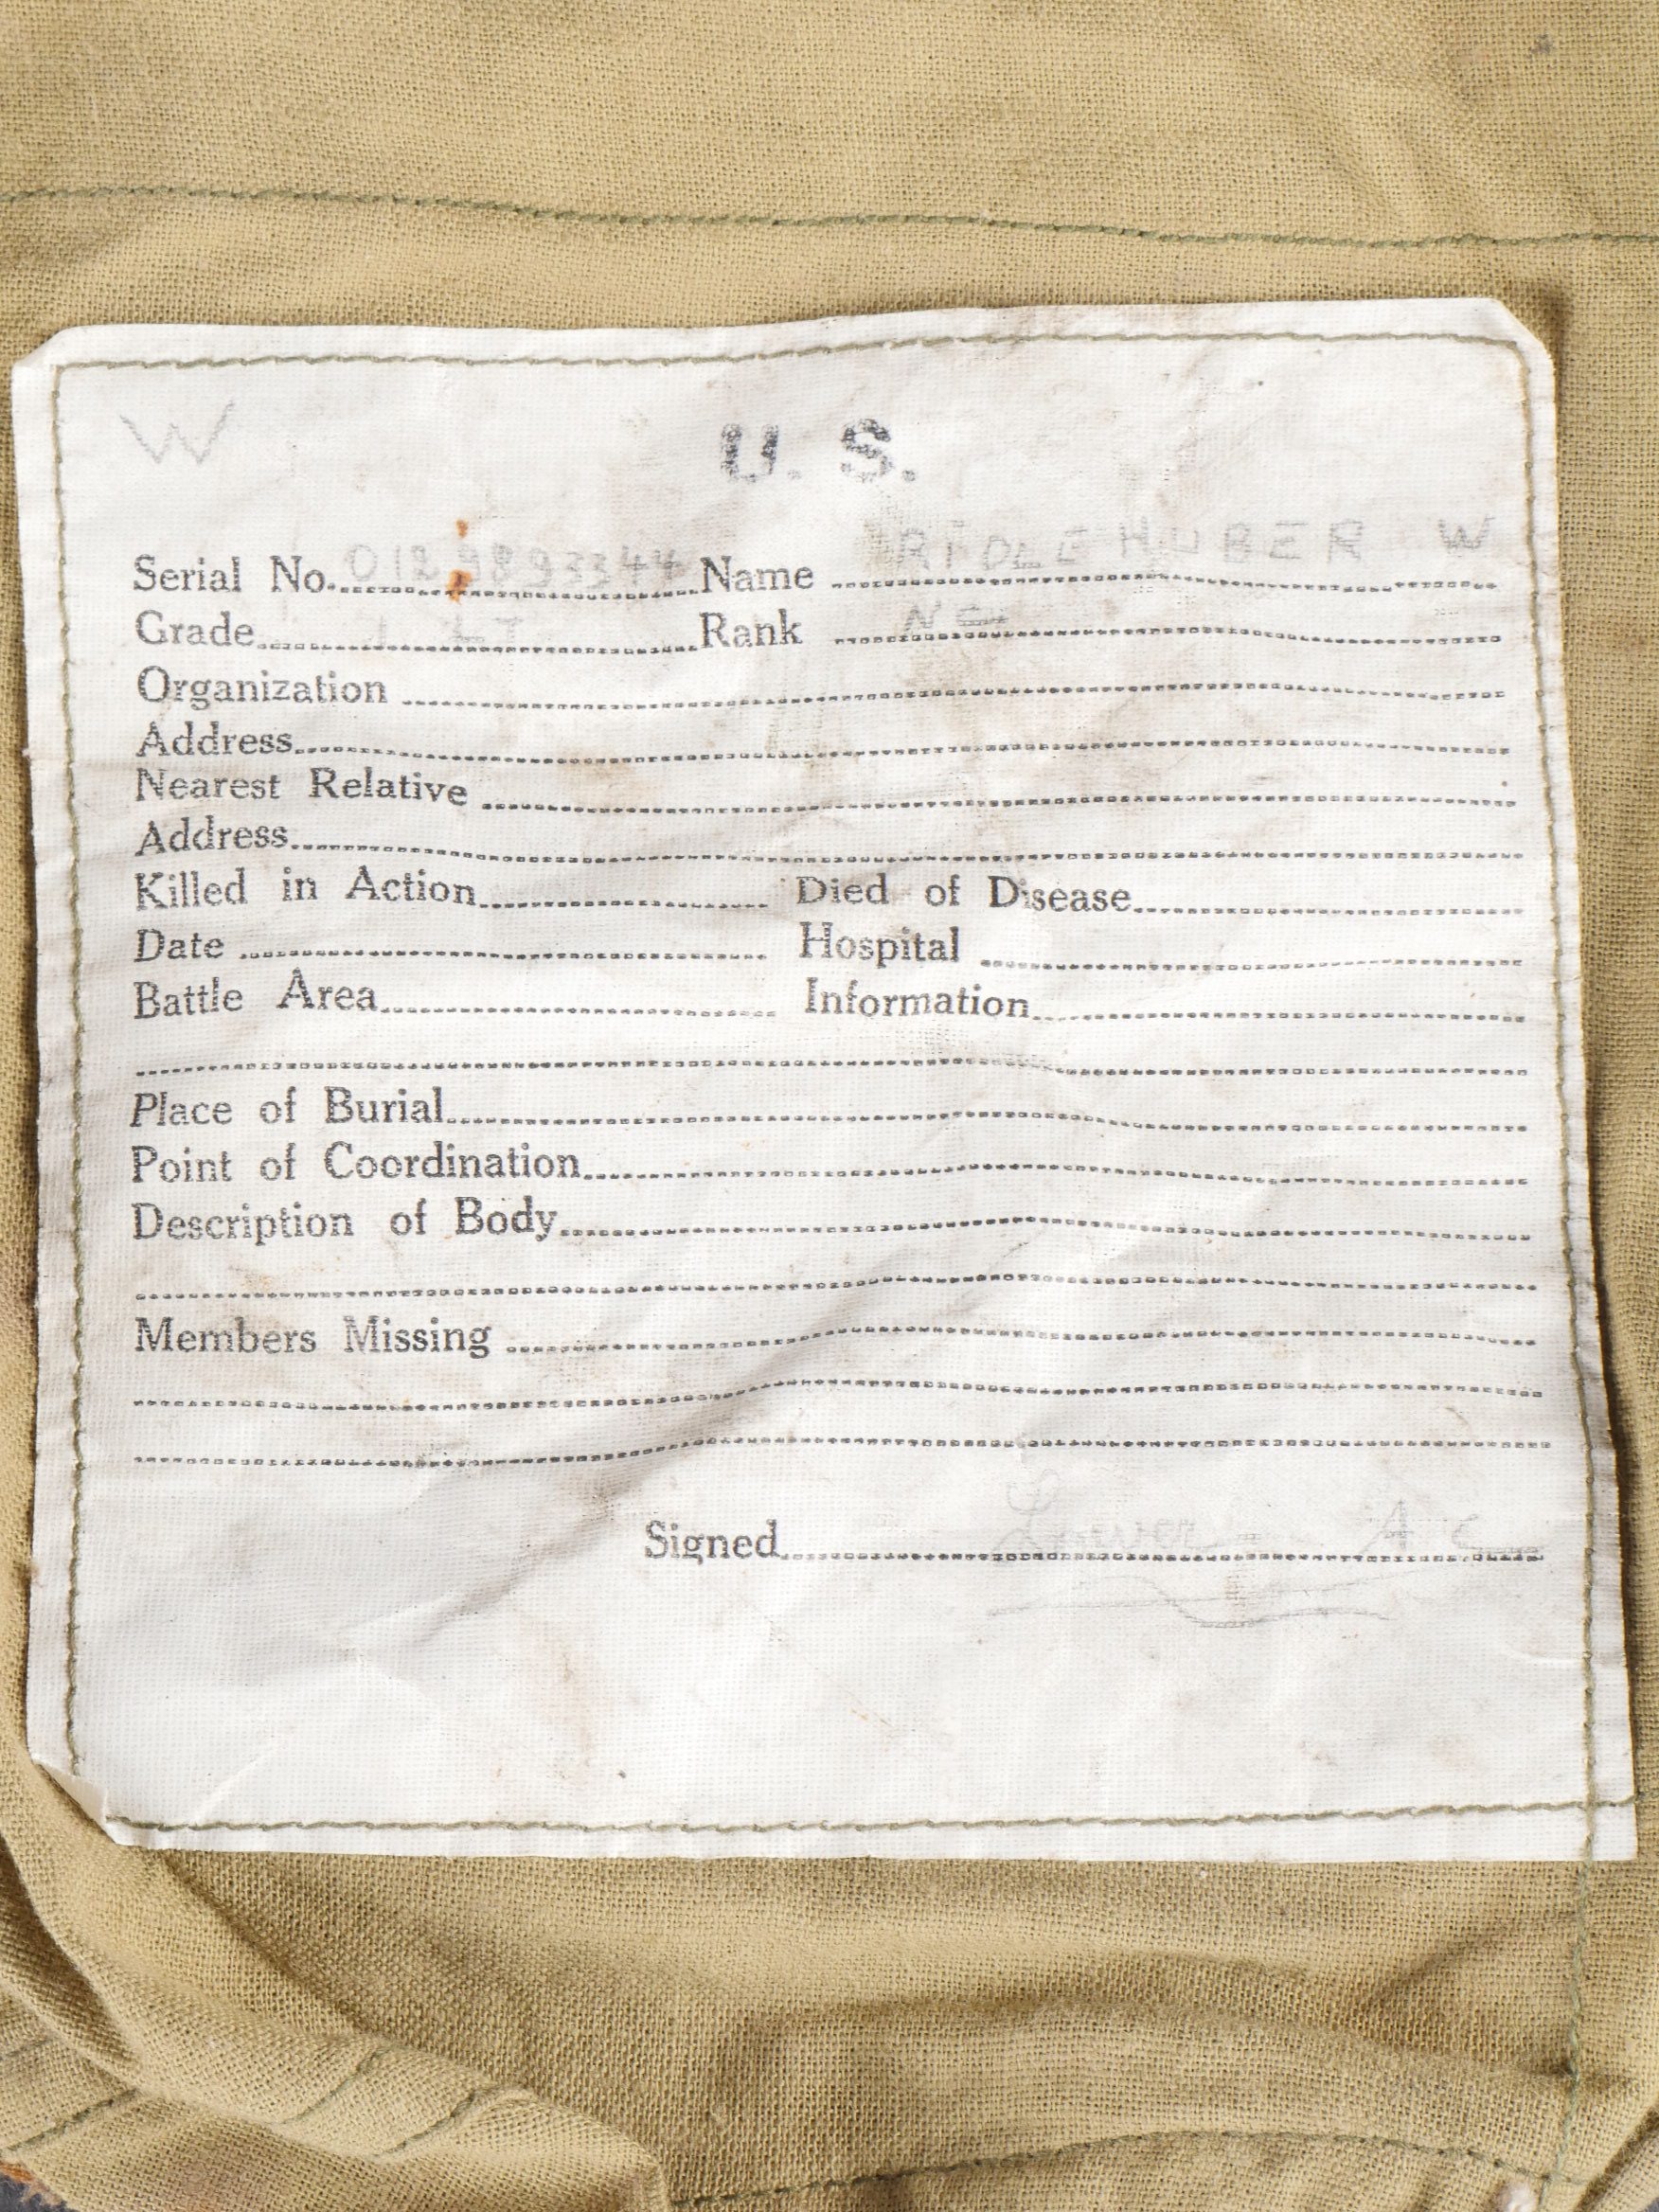 W
U. S.
Serial No. Name HUBER W
Grade Rank
Organization
Address
Nearest Relative
Address
Killed in Action Died of Disease
Date Hospital
Battle Area Information
Place of Burial
Point of Coordination
Description of Body
Members Missing
Signed